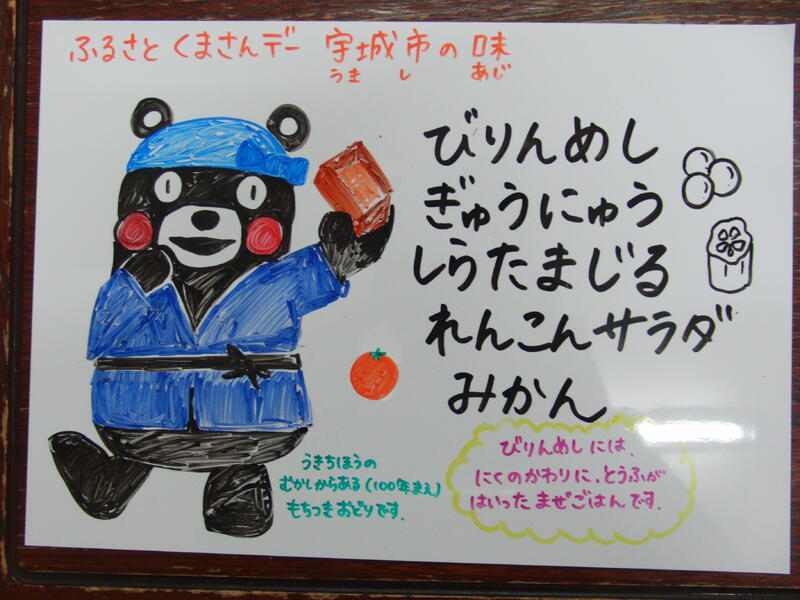 ふるさとくまさんデー 宇城市の味
うき し あじ
びりんめし
ぎゅうにゅう
しらたまじる
れんこんサラダ
みかん
うきちほうの
むかしからある(100年まえ)
もちつきおどりです.
びりんめしには、
にくのかわりに、とうふが
はいったまぜごはんです.